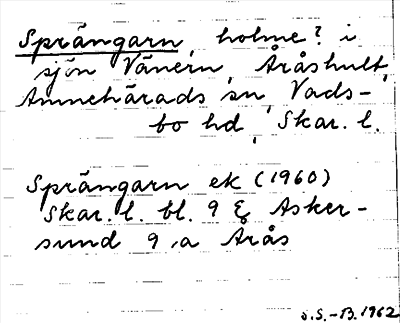 Sprängarn, holme? i
sjön Vänern, Åråshult,
Amnehärads sn, Vads-
bo hd, Skar. l.
Sprängarn ek (1960)
Skar. l. bl. 9 & Asker-
sund 9, a Årås
S.S.-B. 1962